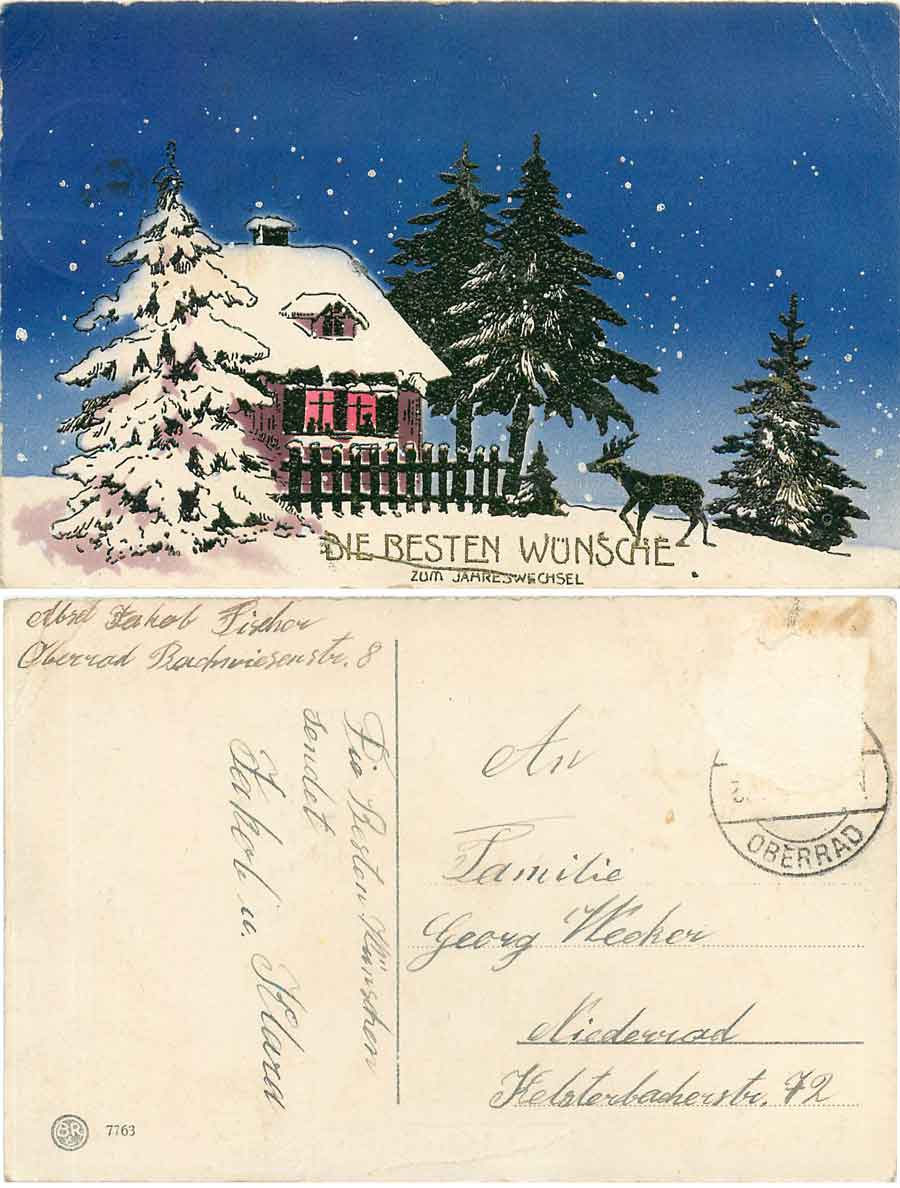 DIE BESTEN WÜNSCHE
ZUM JAHRESWECHSEL
Absd Jakob Fischer
Oberrad Bachwiesenstr. 8
Die Besten Wünschen
sendet
Jakob u. Klara
An
Familie
Georg Wecker
Niederrad
Kelsterbacherstr. 72
OBERRAD
BR
7763